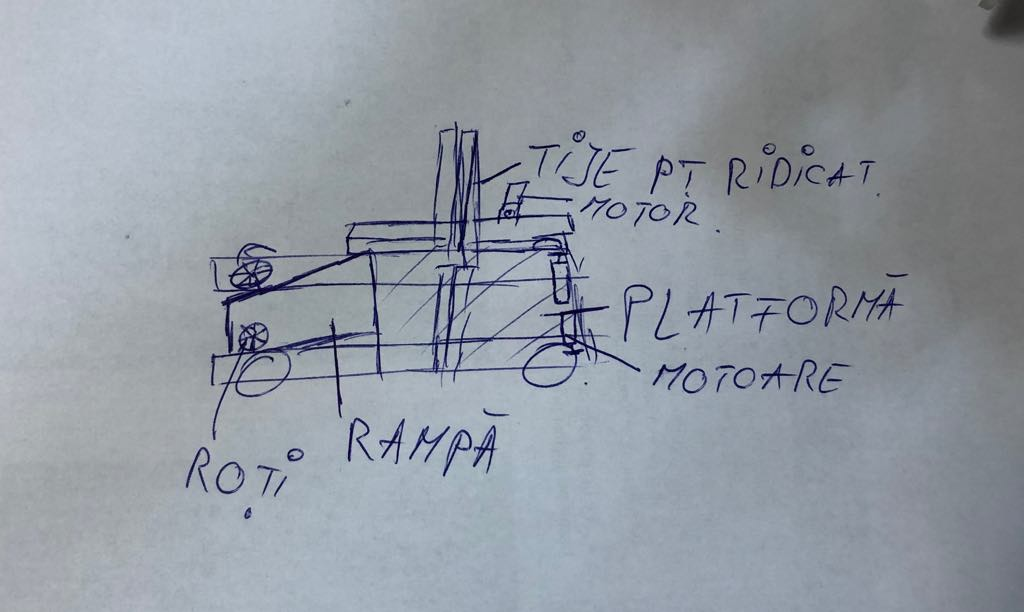 TIJE PȚ RIDICAT.
MOTOR.
PLATFORMĂ
MOTOARE
RAMPĂ
ROȚI